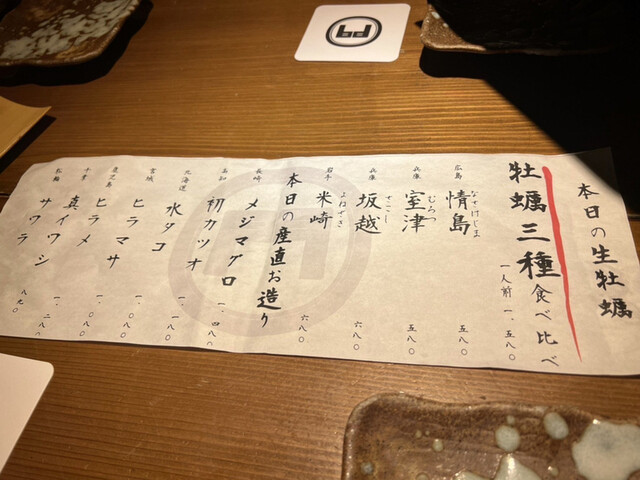 本日の生牡蠣
牡蠣三種食べ比べ
一人前 一、五八〇
広島 情島 なさけじま 五八〇
兵庫 室津 むろつ 五八〇
兵庫 坂越 さこし 六八〇
岩手 米崎 よねざき 六八〇
本日の産直お造り
長崎 メジマグロ
高知 初カツオ 一、四八〇
北海道 水タコ 一、一八〇
宮城 ヒラマサ 一、〇八〇
鹿児島 ヒラメ 一、〇八〇
千葉 真イワシ 一、二八〇
サワラ 八九〇